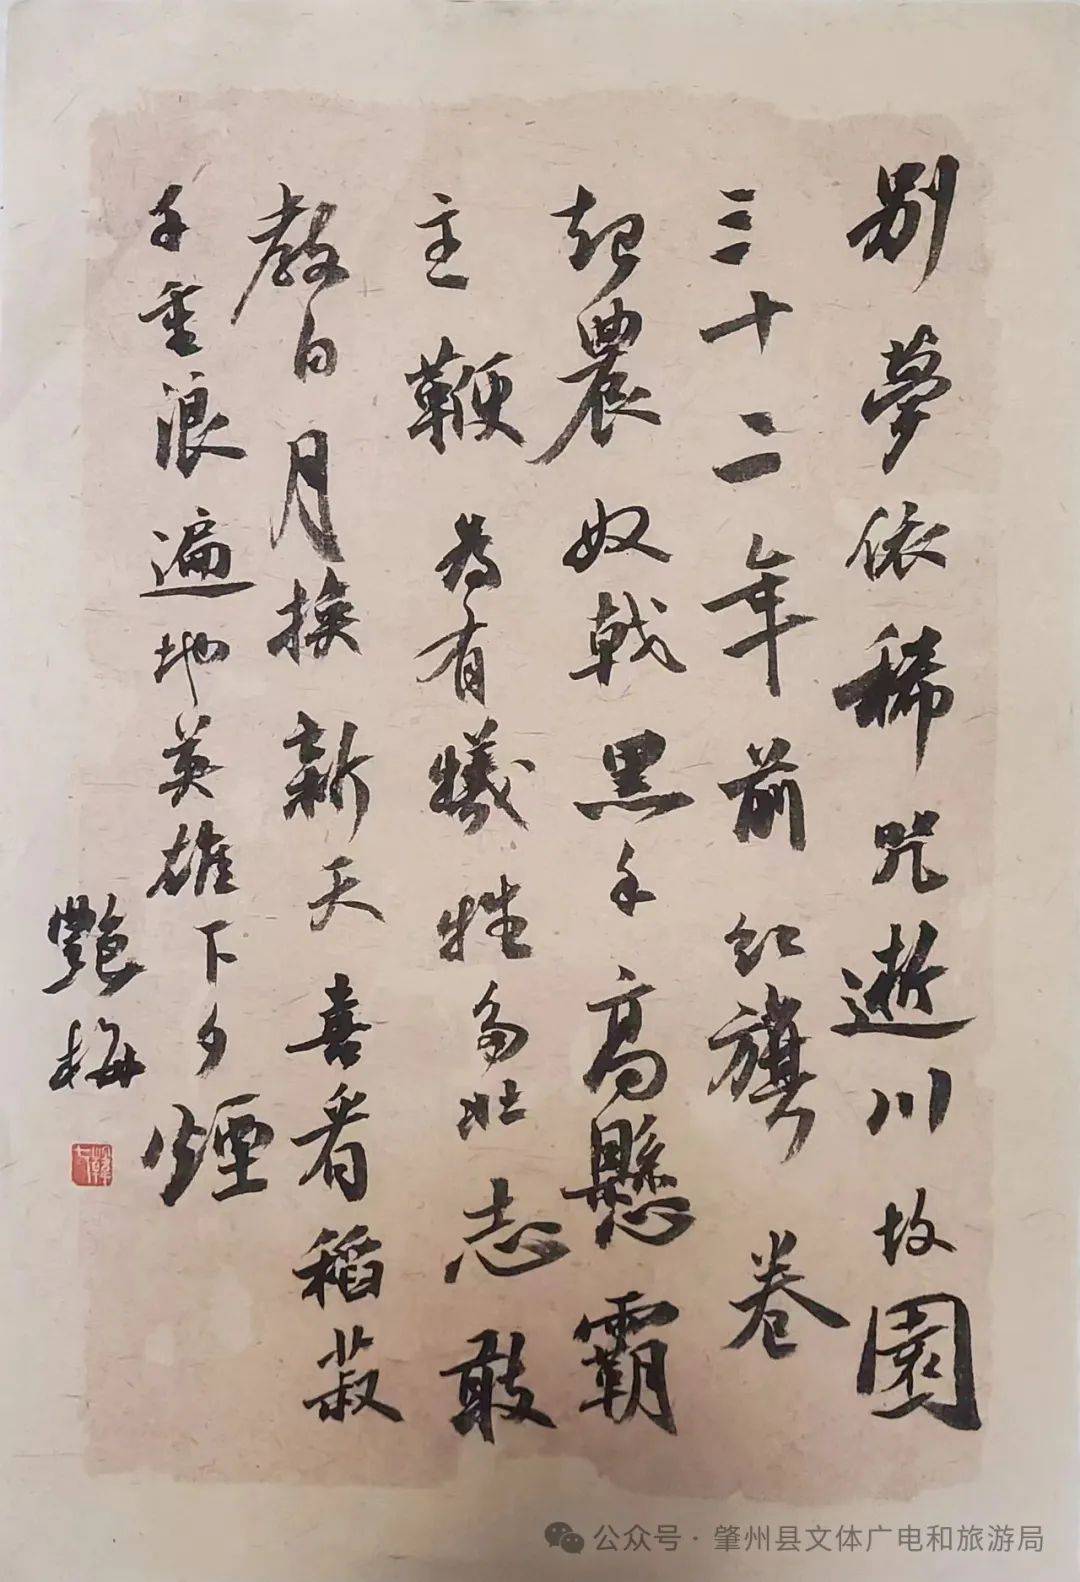 别夢依稀咒逝川故園
三十二年前红旗卷
起農奴戟黑手高懸霸
主鞭為有犧牲多壮志敢
教日月换新天喜看稻菽
千重浪遍地英雄下夕煙
艷梅
公众号·肇州县文体广电和旅游局